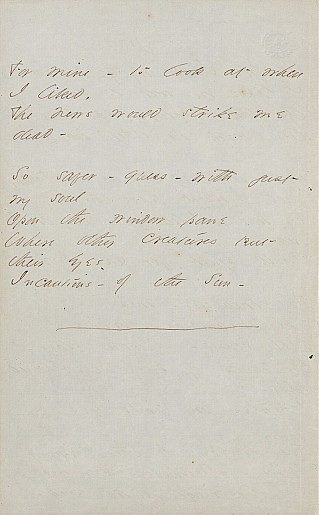 For mine - to look at when
I liked,
The news would strike me
dead -
So safer - guess - with just
my soul
Upon the window pane
Where other creatures put
their eyes
Incautious - of the Sun -